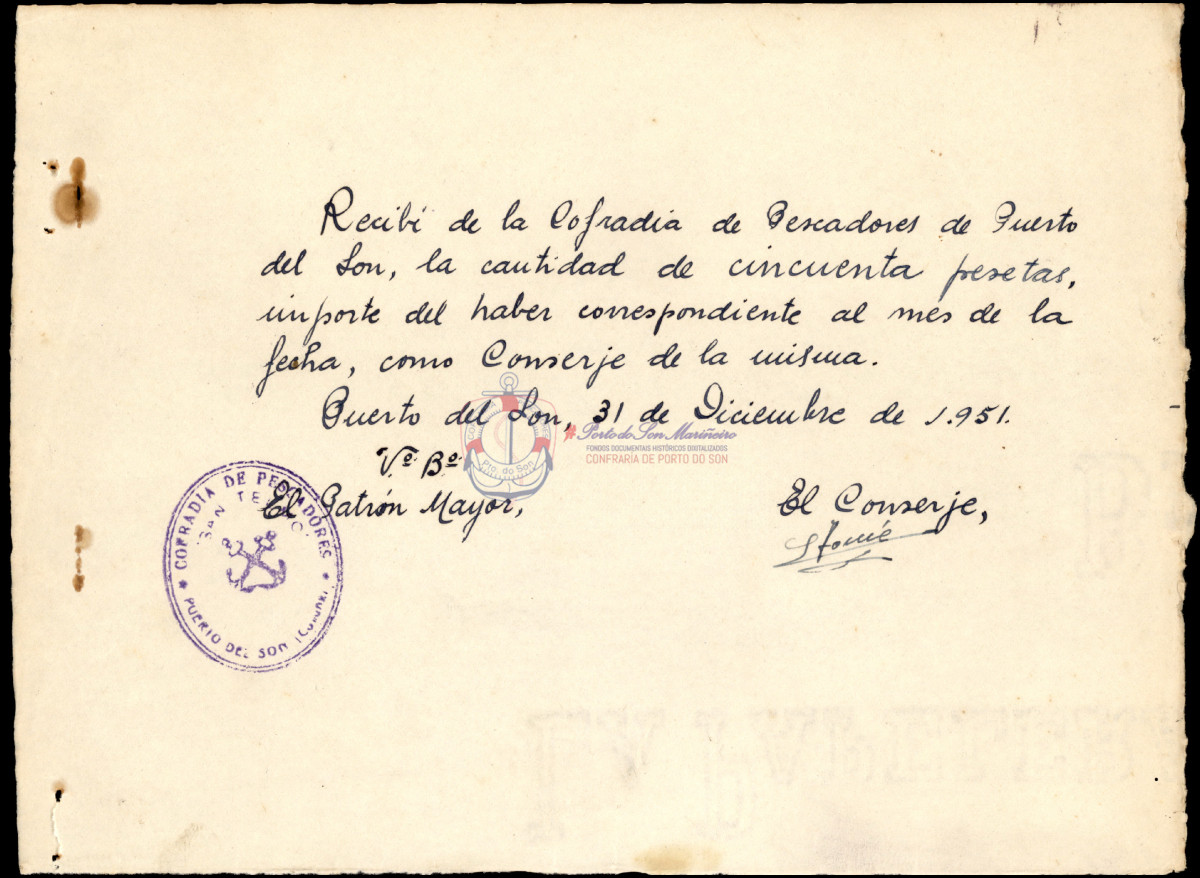 Recibí de la Cofradia de Pescadores de Puerto
del Son, la cantidad de cincuenta pesetas,
importe del haber correspondiente al mes de la
fecha, como Conserje de la misma.
Puerto del Son, 31 de Diciembre de 1.951.
#Porto do Son Mariñeiro
FONDOS DOCUMENTAIS HISTÓRICOS DIGITALIZADOS
CONFRARÍA DE PORTO DO SON
Pto. do Son
Vº Bº
El Patrón Mayor,
El Conserje,
COFRADIA DE PESCADORES
SAN TELMO
PUERTO DEL SON